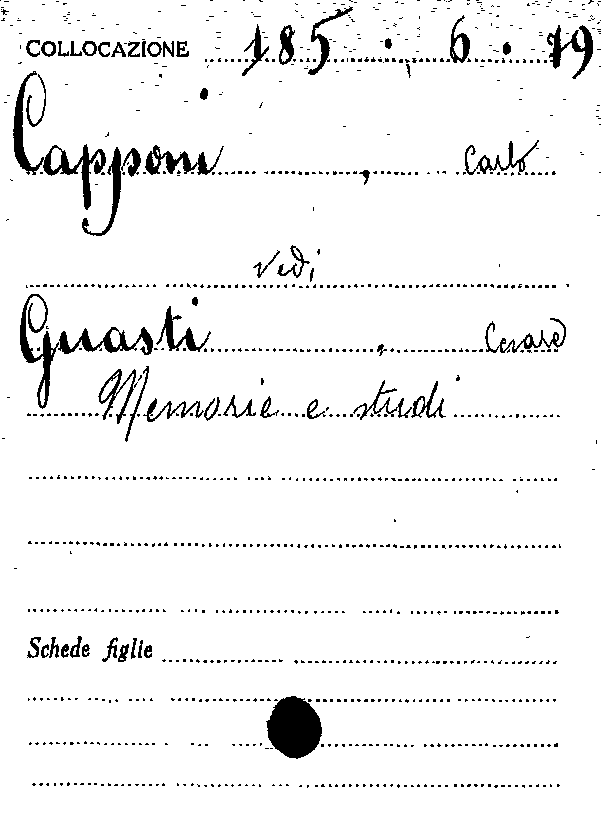 COLLOCAZIONE 185. 6. 19
Capponi, Carlo
vedi
Guasti, Cesare
Memorie e studi
Schede figlie